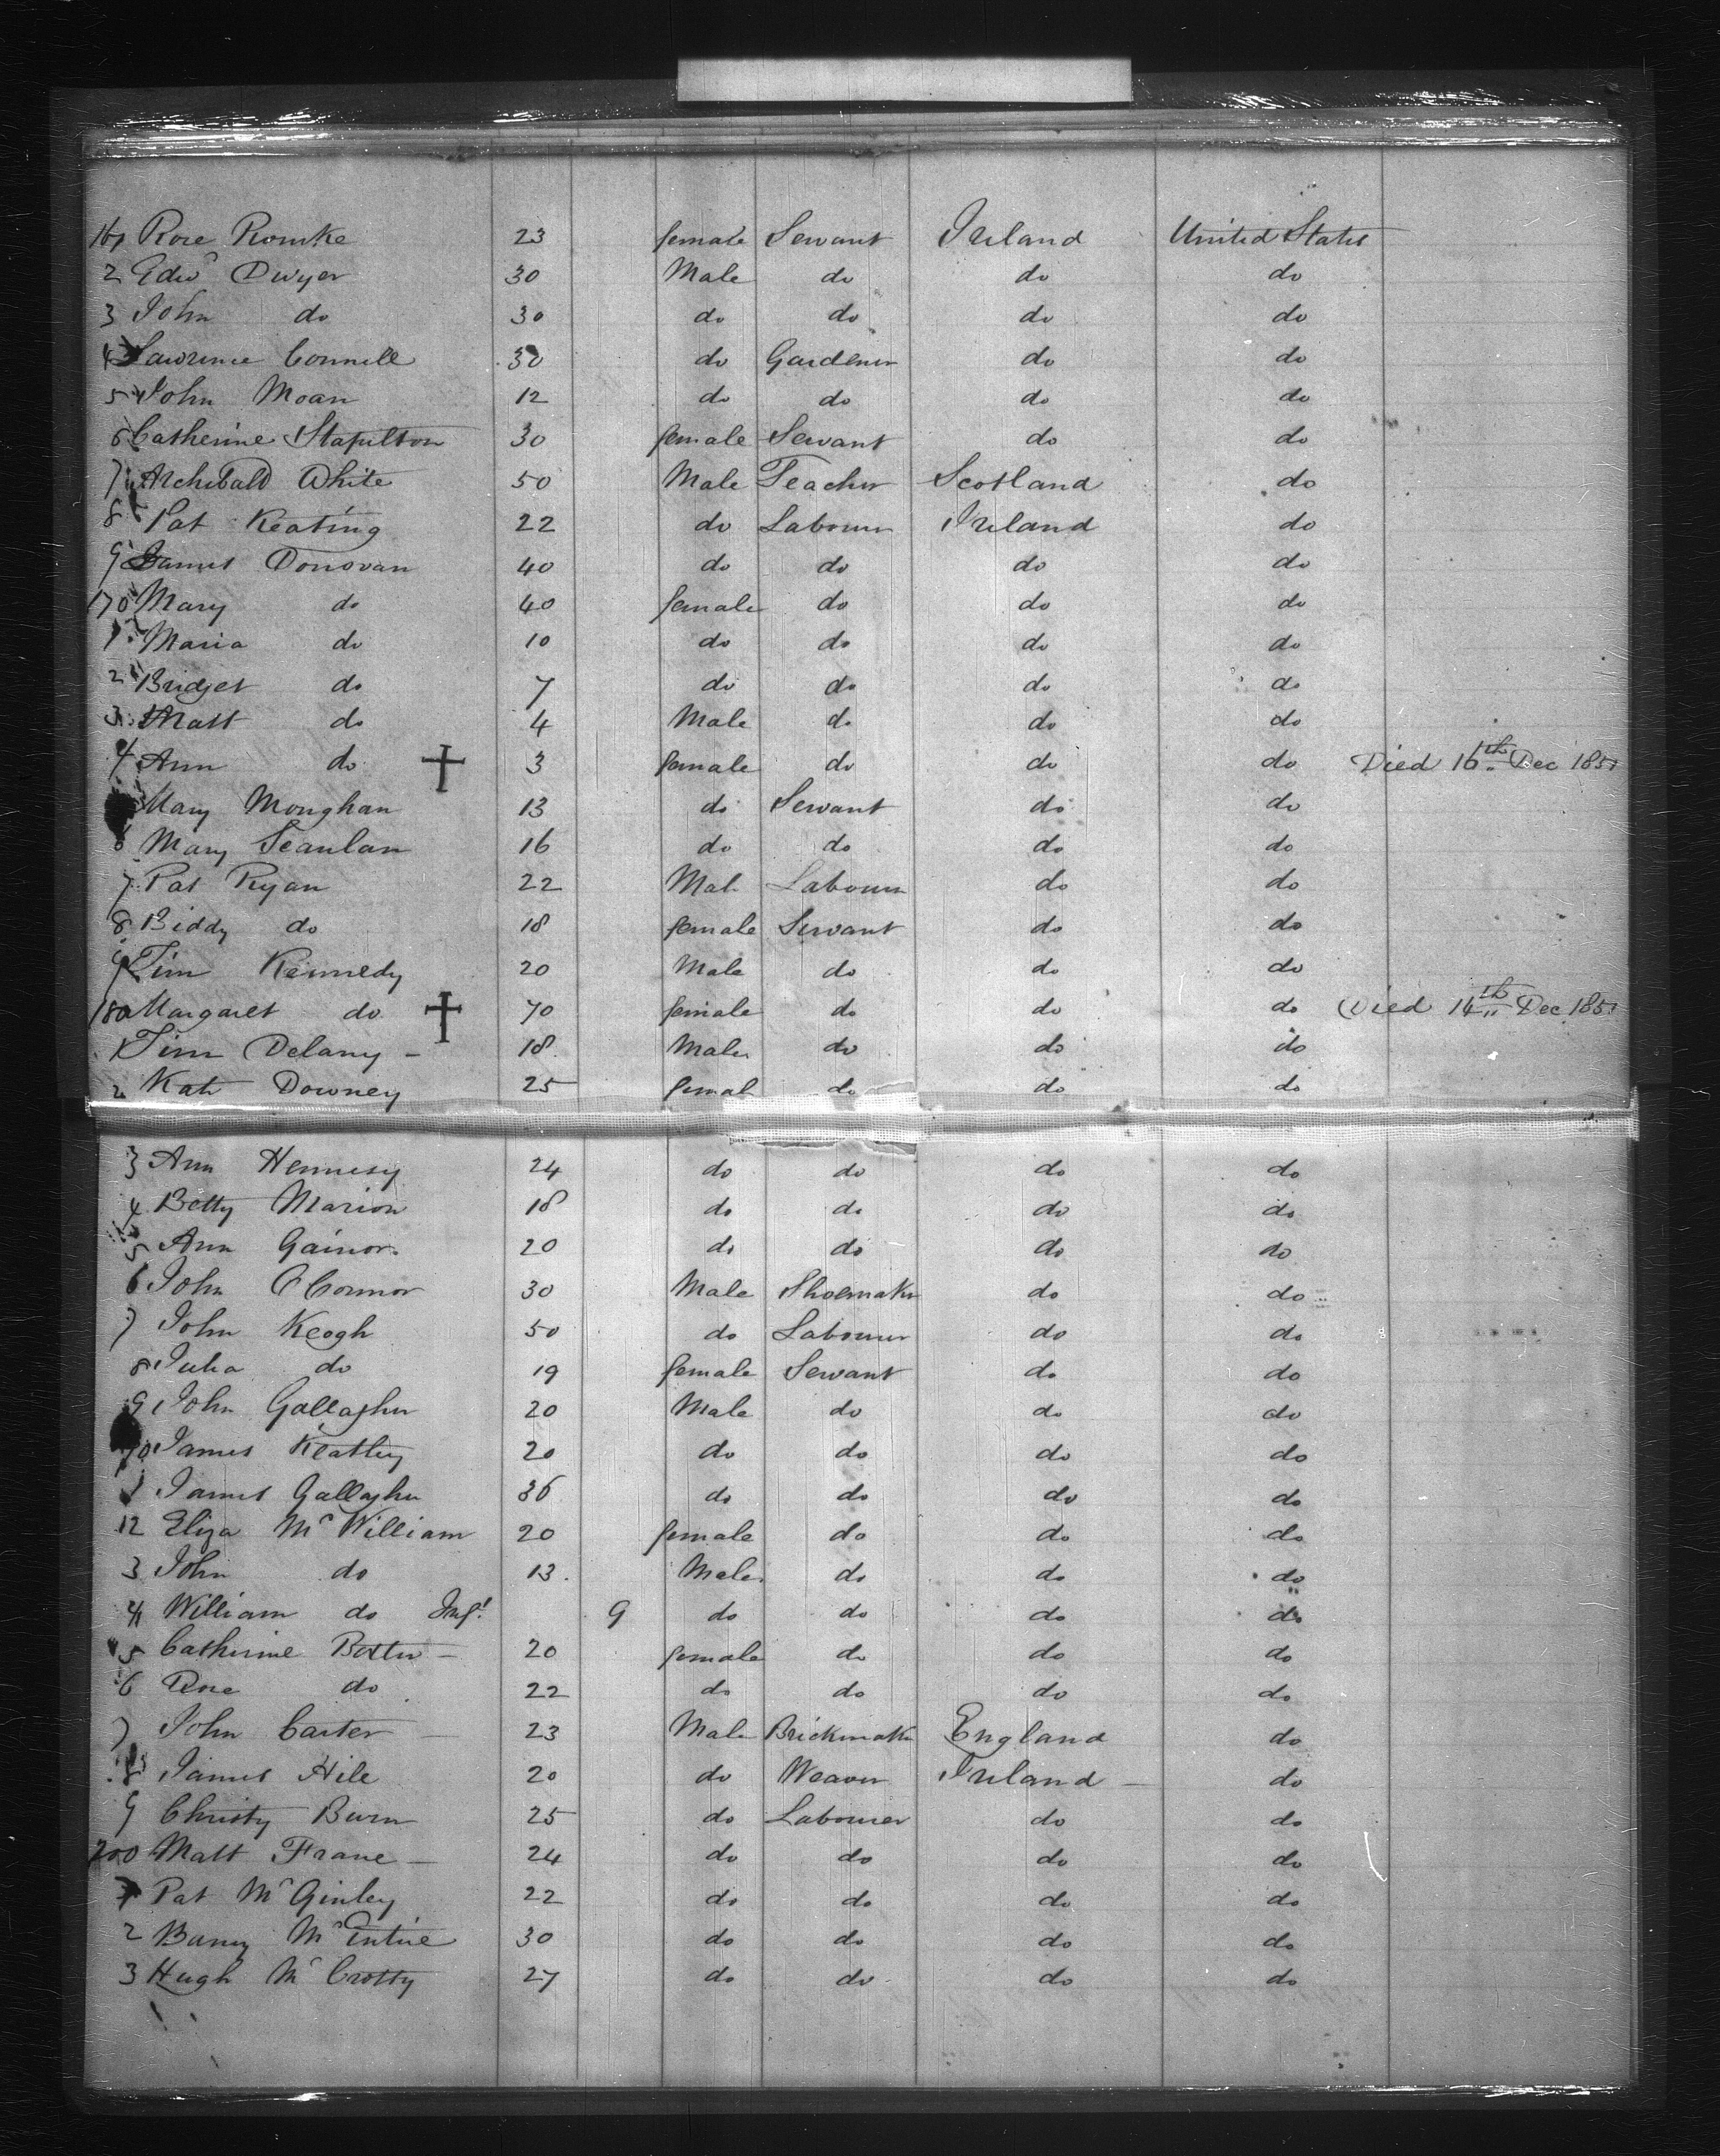 161 Rose Rourke 23 female Servant Ireland United States
2 Edwd Dwyer 30 Male do do do
3 John do 30 do do do do
4 Lawrence Connell 30 do Gardener do do
5 John Moan 12 do do do do
6 Catherine Stapilton 30 female Servant do do
7 Archibald White 50 Male Teacher Scotland do
8 Pat Keating 22 do Labourer Ireland do
9 James Donovan 40 do do do do
170 Mary do 40 female do do do
1 Maria do 10 do do do do
2 Bridget do 7 do do do do
3 Matt do 4 Male do do do
4 Ann do 3 female do do do Died 16th Dec 1851
Mary Monghan 13 do Servant do do
6 Mary Scanlan 16 do do do do
7 Pat Ryan 22 Male Labourer do do
8 Biddy do 18 female Servant do do
9 Tim Kennedy 20 Male do do do
180 Margaret do 70 female do do do Died 14th Dec 1851
1 Tim Delany - 18 Male do do do
2 Kate Downey 25 female do do do
3 Ann Hennesy 24 do do do do
4 Betty Marion 18 do do do do
5 Ann Gainor 20 do do do do
6 John O'Connor 30 Male Shoemaker do do
7 John Keogh 50 do Labourer do do
8 Julia do 19 female Servant do do
9 John Gallagher 20 Male do do do
190 James Keatley 20 do do do do
1 James Gallagher 36 do do do do
12 Eliza McWilliam 20 female do do do
3 John do 13 Male do do do
4 William do Inft 9 do do do do
5 Catherine 20 female do do do
6 Rose do 22 do do do do
7 John Carter 23 Male Brickmaker England do
8 James Hile 20 do Weaver Ireland do
9 Christy Burn 25 do Labourer do do
200 Matt Frane - 24 do do do do
1 Pat McGinley 22 do do do do
2 Barney McEntire 30 do do do do
3 Hugh McCrotty 27 do do do do